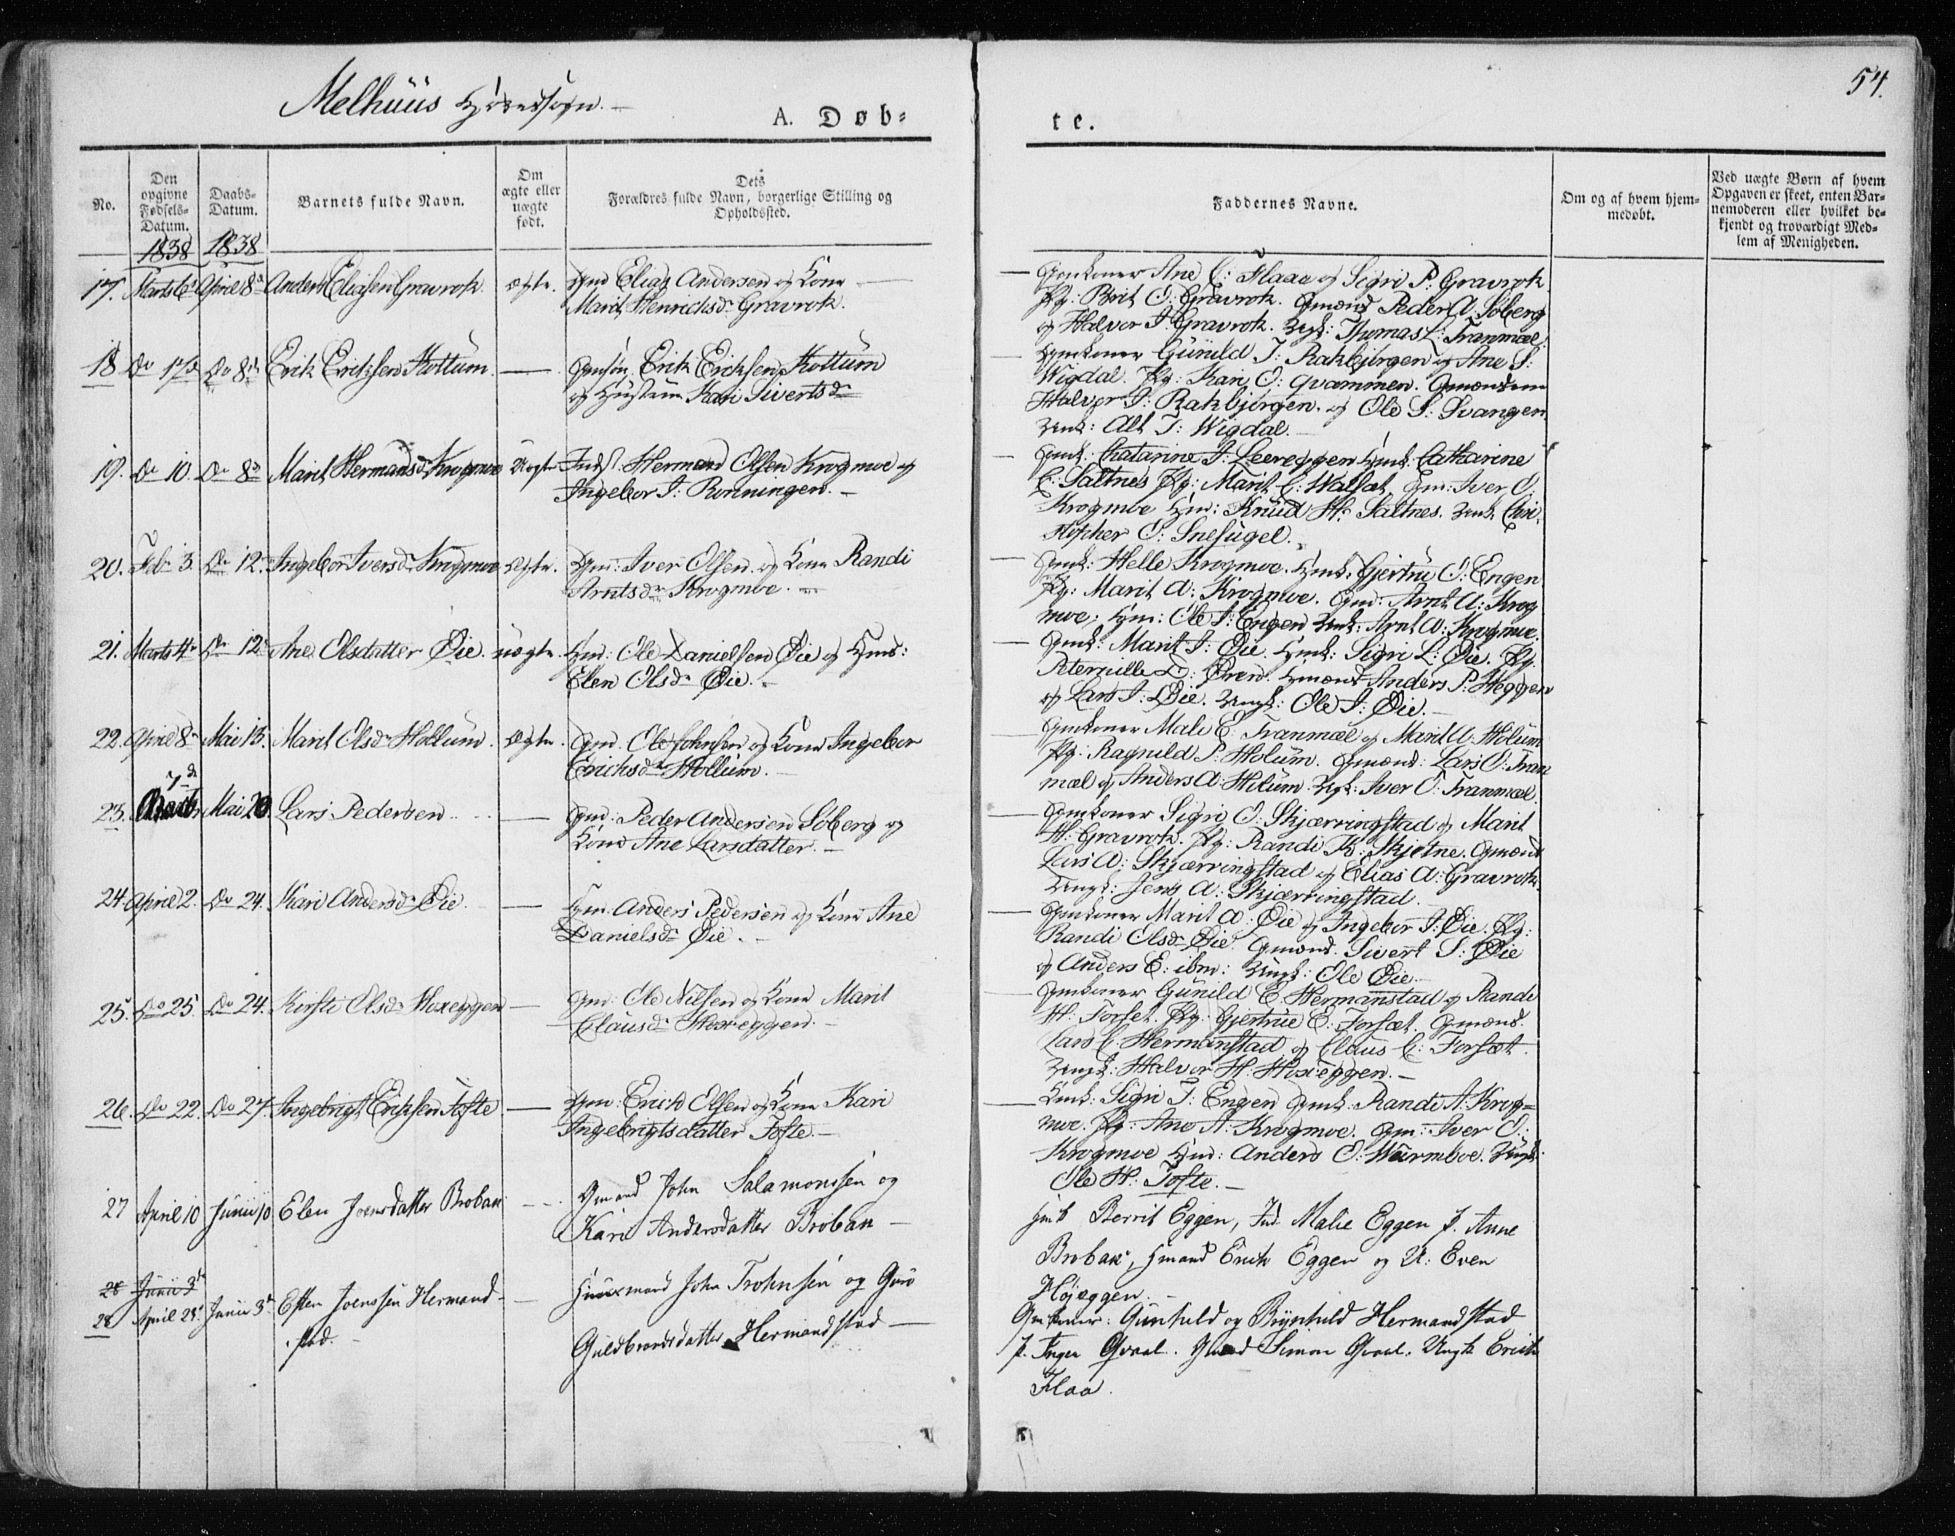 Melhuus Hovedsogn.
54.
A. Døb-
te.
No.
Den opgivne Fødsels-Datum.
Daabs-Datum.
Barnets fulde Navn.
Om ægte eller uægte født.
Dets Forældres fulde Navn, borgerlige Stilling og Opholdssted.
Faddernes Navne.
Om og af hvem hjem-
medøbt.
Ved uægte Børn af hvem
Opgaven er skeet, enten Bar-
nemoderen eller hvilket be-
kjendt og troværdigt Med-
lem af Menigheden.
1838 1838
17. Marts 6 April 8 Anders Eliasen Gravrok. ægte. Gmd Elias Andersen og Kone
Marit Henrichsdr Gravrok.
Gmkoner Ane E: Flaae og Sigri P: Gravrok
Pg: Brit O: Gravrok. Gmænd Peder A: Søberg
og Halvor I: Gravrok. Ungk: Thomas L: Tranmæl.
18 Do 17 Do 8 Erik Erichsen Kottum. — Gmsøn Erik Erichsen Kottum
og Hustrue Kari Sivertsdr
Gmkoner Gunild I: Rakbjørgen og Ane S:
Wigdal. Pg: Kari O: Qvammen. Gmændene
Halvor I: Rakbjørgen og Ole S: Svangen
Ungk: Alt I: Wigdal.
19. Do 10. Do 8 Marit Hermansdr Krogmoe Uægte Inds. Herman Olsen Krogmoe og
Ingebor I: Rønningen.
Gmk: Chatarine I: Leereggen Hmk: Catharine
E: Saltnes Pg: Marit E: Walsæt, Gm: Iver O:
Krogmoe Hm: Knud H: Saltnes. Ungk: Chri-
stopher O: Snefugel.
20. Feb: 3. Do 12 Ingebor Iversdr Krogmoe Ægte. Gm: Iver Olsen og Kone Randi
Arntsdr Krogmoe.
Gmk: Helle Krogmoe. Hmk: Gjertru O: Engen
Pg: Marit A: Krogmoe. Gm: Arnt A: Krog
moe, Hm: Ole I: Engen Ungk: Arnt A: Krogmoe.
21. Marts 4 Do 12 Ane Olsdatter Øie. uægte. Hm: Ole Danielsen Øie og
Elen Olsdr Øie.
Gmk: Marit I: Øie. Hmk: Sigri L: Øie. Pg:
Peternille D: Øren. Hmænd Anders P: Heggen
og Lars I: Øie. Ungk: Ole I: Øie.
22. April 8 Mai 13. Marit Olsdr Hollum. Ægte. Gm: Ole Johnsen og Kone Ingebor
Erichsdr Hollum.
Gmkoner Male E: Tranmæl og Marit A: Holum
Pg: Ragnild P: Holum. Gmænd: Lars O: Tran
mæl og Anders A: Holum. Ungk: Iver O: Tranmæl.
23. Mai 20. Lars Pedersen — Gm: Peder Andersen Søberg og
Kone Ane Larsdatter.
Gmkoner Sigri O: Skjærringstad og Marit
H: Gravrok. Pg: Randi K: Skjetne. Gmænd
Lars A: Skjærringstad og Elias A: Gravrok.
Ungk: Jens A: Skjærringstad.
24. April 2. Do 24. Kari Andersdr Øie. — Hm: Anders Pedersen og Kone Ane
Danielsdr Øie.
Gmkoner Marit A: Øie og Ingebor I: Øie. Pg:
Randi Olsdr Øie. Gmænd. Sivert S: Øie
og Anders E: ibm: Ungk: Ole Øie.
25. Do 25 Do 24. Kirsti Olsdr Hoxeggen — Gm: Ole Nilsen og Kone Marit
Clausdr Hoxeggen.
Gmkoner Gunild E: Hermanstad og Randi
H: Forset. Pg: Gjertrue E: Forsæt. Gmænd.
Lars E: Hermanstad og Claus E: Forsæt.
Ungk: Halvor H: Hoxeggen.
26. Do 22. Do 27. Ingebrigt Erichsen Tofte — Hm: Erich Olsen og Kone Kari
Ingebrigtsdatter Tofte.
Kmk: Sigri I: Engen Gmk: Randi A: Krog=
moe. Pg: Ane A: Krogmoe. Gm: Iver O:
Krogmoe Hm: Anders O: Warmboe. Ungk:
Ole H: Tofte.
27 April 10 Junii 10 Elen Joensdatter Broban — Gmand John Salamonsen og
Kari Andersdatter Broban —
Hmk Berrit Eggen, Ind. Malie Eggen P. Anne
Broban, Hmand Erich Eggen og U: Even
Højeggen.
28 Junii 3
28 April 28 Junii 3 Esten Joenssen Hermand-
stad. — Huusmand John Trohnsen og Guro
Guldbrandsdatter Hermandstad —
Gmkoner: Gunhild og Brynhild Hermandstad
P. Inger Qvaal. Gmand Simon Qvaal. Ungk Erich
Flaa.